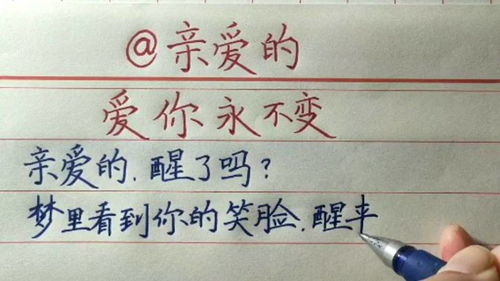 @亲爱的
爱你永不变
亲爱的.醒了吗?
梦里看到你的笑脸.醒平